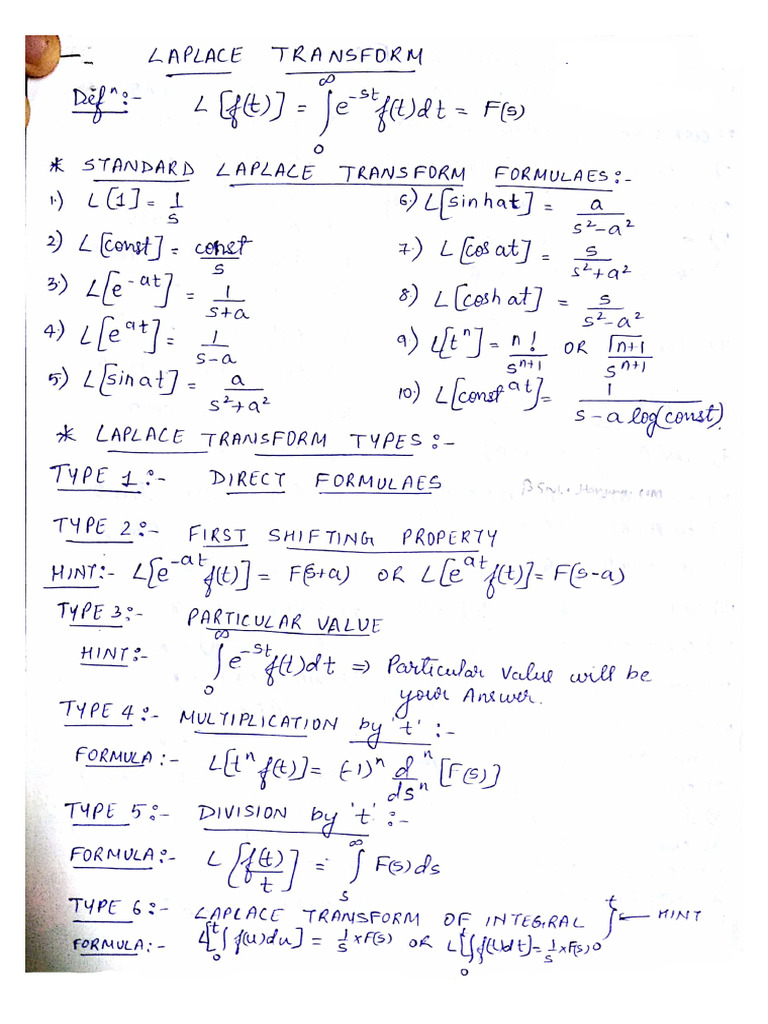 LAPLACE TRANSFORM
Defⁿ:- L[f(t)] = ∫₀^∞ e^(-st) f(t)dt = F(s)
* STANDARD LAPLACE TRANSFORM FORMULAES:-
1.) L[1] = 1/s
2) L[const] = const/s
3.) L[e^(-at)] = 1/(s+a)
4.) L[e^(at)] = 1/(s-a)
5.) L[sinat] = a/(s²+a²)
6.) L[sinhat] = a/(s²-a²)
7.) L[cosat] = s/(s²+a²)
8.) L[coshat] = s/(s²-a²)
9) L[tⁿ] = n!/s^(n+1) OR Γn+1/s^(n+1)
10.) L[const^(at)] = 1/(s-a log(const))
* LAPLACE TRANSFORM TYPES:-
TYPE 1:- DIRECT FORMULAES
TYPE 2:- FIRST SHIFTING PROPERTY
HINT:- L[e^(-at) f(t)] = F(s+a) OR L[e^(at) f(t)] = F(s-a)
TYPE 3:- PARTICULAR VALUE
HINT:- ∫₀^∞ e^(-st) f(t)dt ⇒ Particular Value will be
your Answer.
TYPE 4:- MULTIPLICATION by 't':-
FORMULA:- L[tⁿ f(t)] = (-1)ⁿ dⁿ/dsⁿ [F(s)]
TYPE 5:- DIVISION by 't':-
FORMULA:- L[f(t)/t] = ∫ₛ^∞ F(s)ds
TYPE 6:- LAPLACE TRANSFORM OF INTEGRAL ∫₀^t ← HINT
FORMULA:- L[∫₀^t f(u)du] = 1/s × F(s) OR L[∫₀^t f(t)dt] = 1/s × F(s)